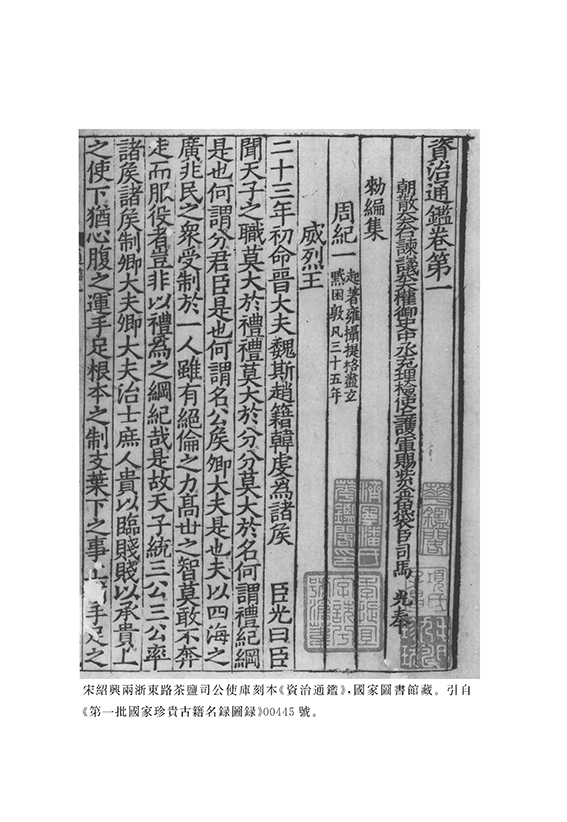 資治通鑑卷第一
朝散大夫右諫議大夫權御史中丞充理檢使上護軍賜紫金魚袋臣司馬光奉
勑編集
周紀一
起著雍攝提格盡玄
黓困敦凡三十五年
威烈王
二十三年初命晉大夫魏斯趙籍韓虔爲諸侯 臣光曰臣
聞天子之職莫大於禮禮莫大於分分莫大於名何謂禮紀綱
是也何謂分君臣是也何謂名公侯卿大夫是也夫以四海之
廣兆民之衆受制於一人雖有絕倫之力高世之智莫敢不奔
走而服役者豈非以禮爲之綱紀哉是故天子統三公三公率
諸侯諸侯制卿大夫卿大夫治士庶人貴以臨賤賤以承貴上
之使下猶心腹之運手足根本之制支葉下之事上猶手足之
宋紹興兩浙東路茶鹽司公使庫刻本《資治通鑑》，國家圖書館藏。引自
《第一批國家珍貴古籍名録圖録》00445 號。